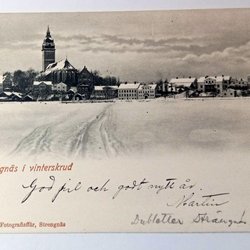 gnäs i vinterskrud
God jul och godt nytt år.
Martin
Dubletter Strängnäs
Fotografiaffär, Strengnäs